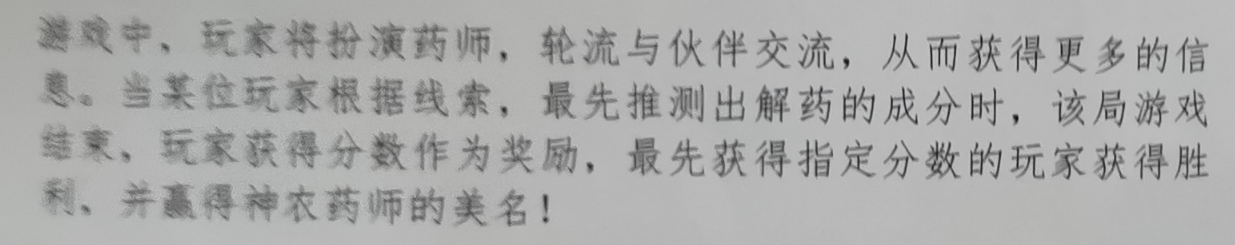 游戏中，玩家将扮演药师，轮流与伙伴交流，从而获得更多的信
息。当某位玩家根据线索，最先推测出解药的成分时，该局游戏
结束，玩家获得分数作为奖励，最先获得指定分数的玩家获得胜
利，并赢得神农药师的美名！